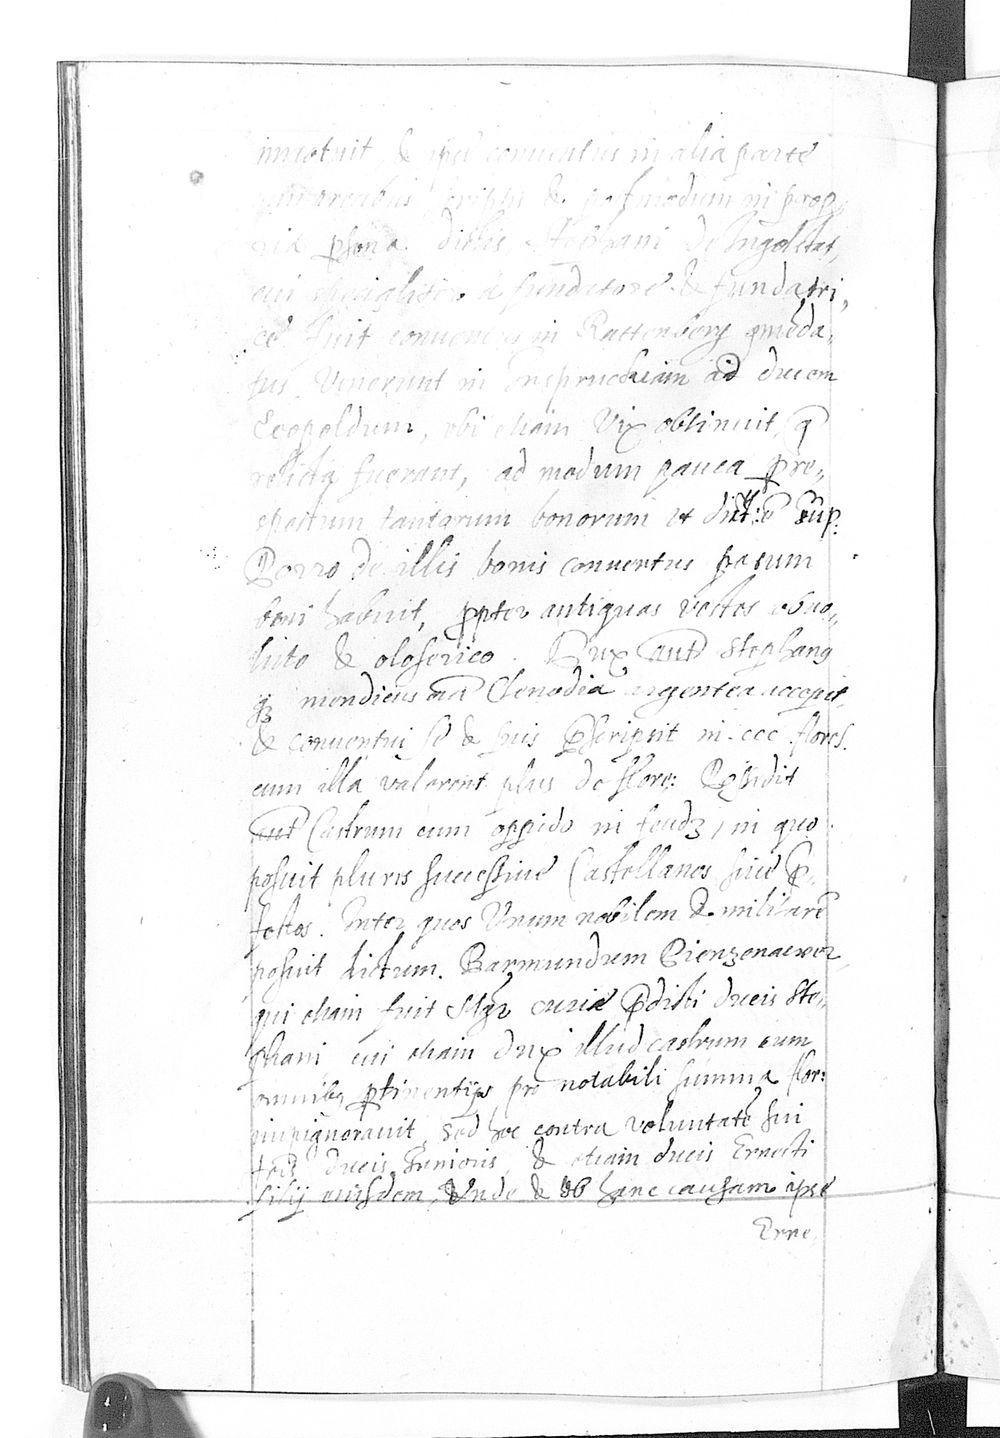 innotuit, & ipse conventus in alia parte
& postmodum in prop,
ria psona dictis Stephani de Ingolstat,
cui specialiter a fundatore & fundatri,
ce fuit conventus in Rattenberg
tus Venerunt in Inspruckiam ad ducem
Leopoldum, ubi etiam Vix obtinuit, q
relicta fuerant, ad modum pauca pre,
tantarum bonorum ut dict: e sup.
Porro de illis bonis conventus parum
boni habuit, ppter antiquas vestes
& oloserico. Dux aut Stephang
mendicus Clenodia argentea accepit,
& conventui se & suis pscripsit in ccc flores.
cum illa valerent plus de flore:
aut Castrum cum oppido in feudz, in quo
posuit pluris successive Castellanos sive p,
fectos. Inter quos Unum nobilem & militarē
posuit dictum. Barmundum Pienzenawer
qui etiam fuit Mgr curiæ pdicti ducis Ste,
phani cui etiam dux illud castrum cum
omnibg ptinentijs pro notabili summa flor:
inpignoravit, sed hoc contra voluntatē sui
ducis Junioris, & etiam ducis Ernesti
filij eiusdem, Unde & ob hanc causam ipse
Erne,